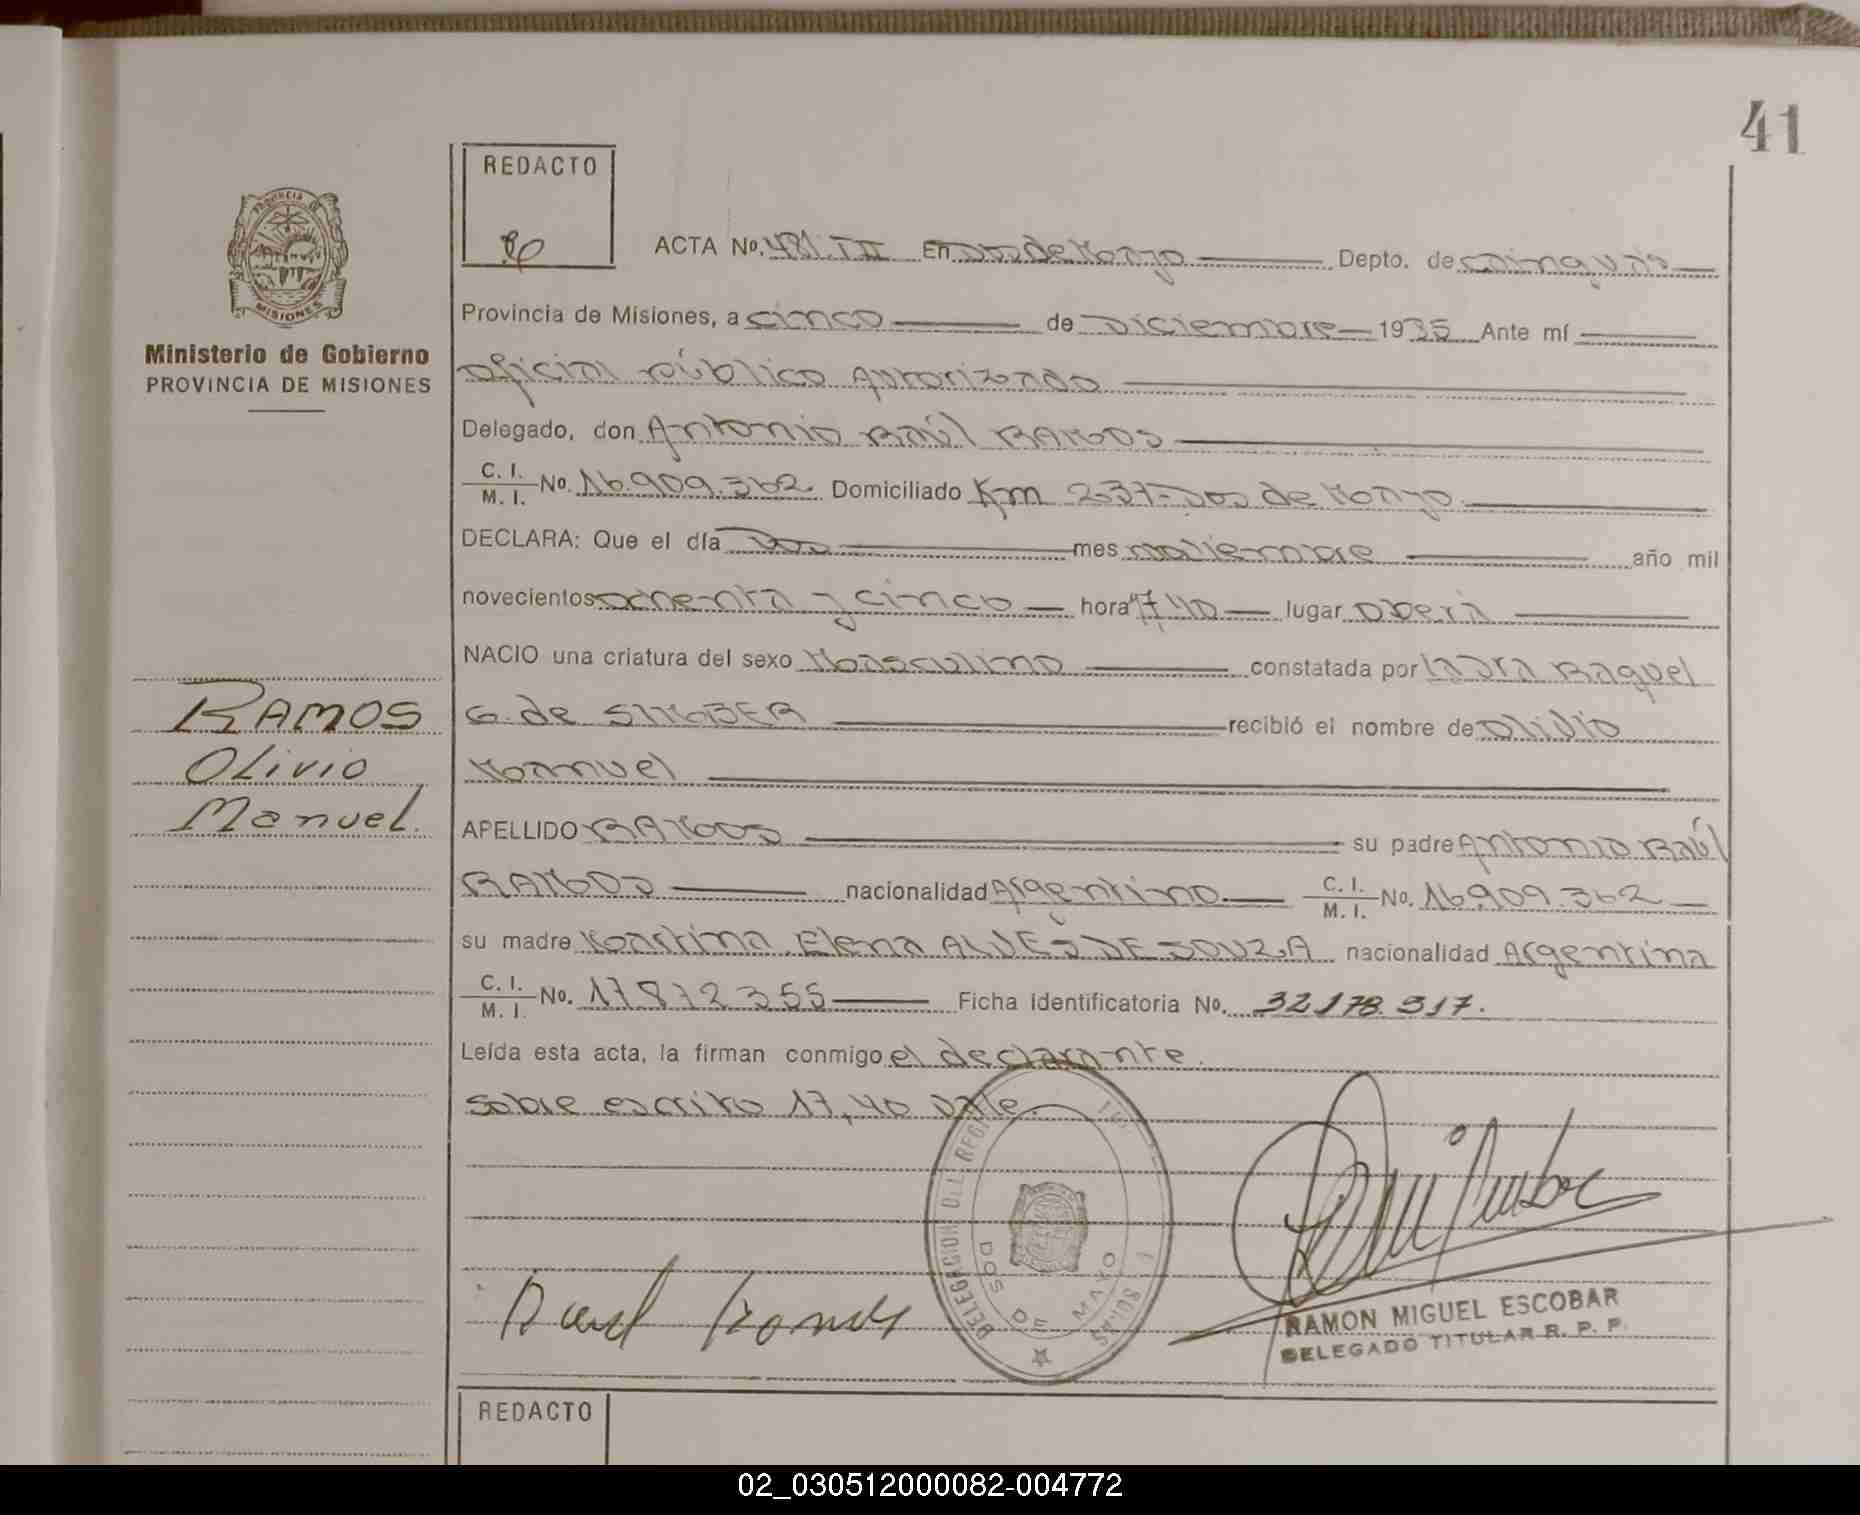 41
REDACTO
ACTA No. 481. III En Dos de Mayo Depto. de Cainguás
Provincia de Misiones, a cinco de Diciembre 1985 Ante mí
Oficial público Autorizado
Delegado, don Antonio Raúl RAMOS
C. I. / M. I. No. 16.909.362 Domiciliado Km 237-Dos de Mayo
DECLARA: Que el día Dos mes noviembre año mil
novecientos ochenta y cinco hora 17 40 lugar Oberá
NACIO una criatura del sexo Masculino constatada por Raquel
G. de recibió el nombre de Olivio
Manuel
APELLIDO RAMOS su padre Antonio Raúl
RAMOS nacionalidad Argentino C. I. / M. I. No. 16.909.362
su madre Martina Elena ALVES DE SOUZA nacionalidad Argentina
C. I. / M. I. No. 17 872 355 Ficha Identificatoria No. 32.178.317.
Leída esta acta, la firman conmigo el declarante.
Sobre escrito 17,40 Vale.
Ministerio de Gobierno
PROVINCIA DE MISIONES
RAMOS
Olivio
Manuel.
PROVINCIA DE
MISIONES
DELEGACION DEL REG
DOS DE MAYO
Raul Ramos
RAMON MIGUEL ESCOBAR
DELEGADO TITULAR R. P. P.
REDACTO
02_030512000082-004772